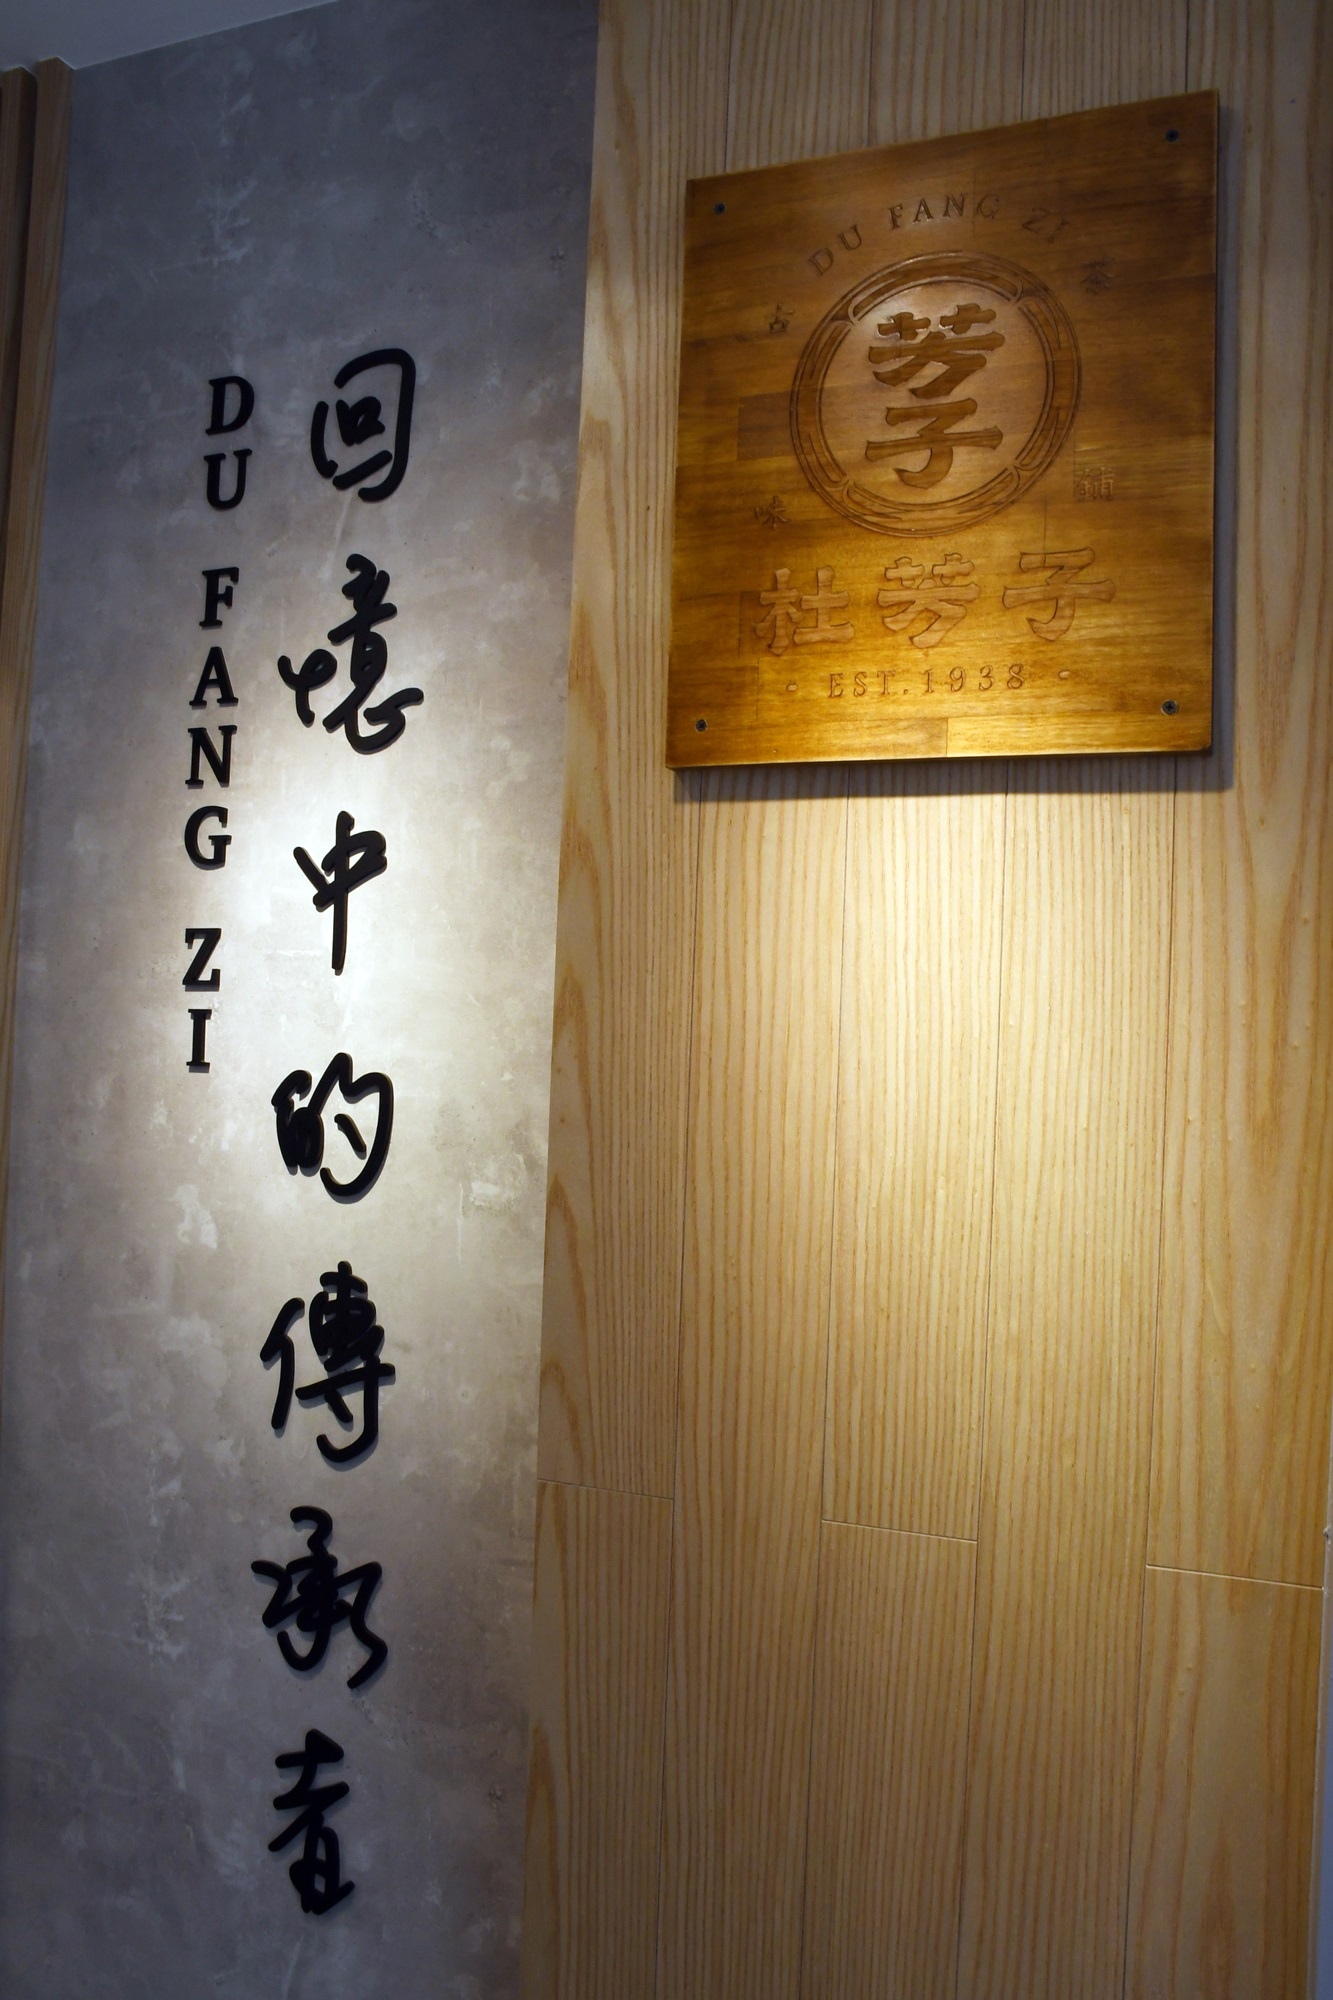 回憶中的傳承者
DU FANG ZI
DU FANG ZI
古味
茶鋪
芳子
杜芳子
· EST.1938 ·